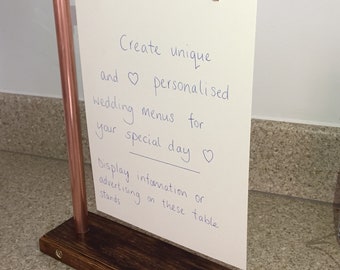 Create unique
and ♡ personalised
wedding menus for
your special day ♡
Display information or
advertising on these table
stands